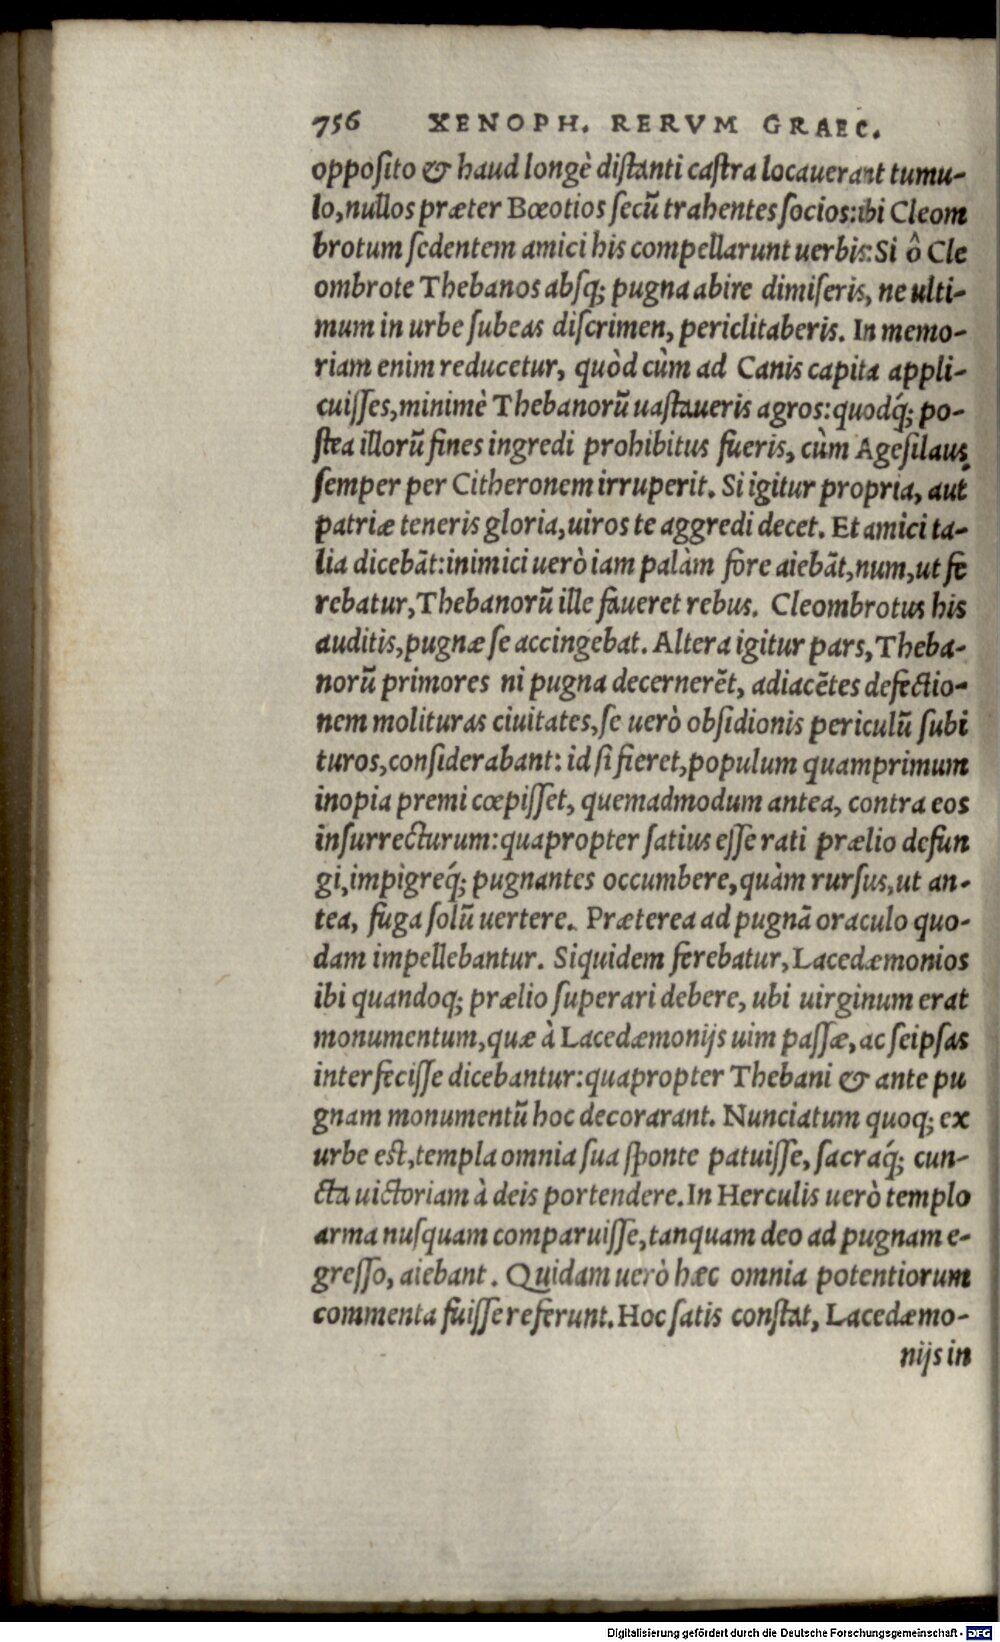 756 XENOPH. RERVM GRAEC.
opposito & haud longè distanti castra locauerant tumu-
lo, nullos præter Bœotios secũ trahentes socios: ibi Cleom
brotum sedentem amici his compellarunt uerbis: Si ô Cle
ombrote Thebanos absq; pugna abire dimiseris, ne ulti-
mum in urbe subeas discrimen, periclitaberis. In memo-
riam enim reducetur, quòd cùm ad Canis capita appli-
cuisses, minimè Thebanorũ uastaueris agros: quodq́; po-
stea illorũ fines ingredi prohibitus fueris, cùm Agesilaus
semper per Citheronem irruperit. Si igitur propria, aut
patriæ teneris gloria, uiros te aggredi decet. Et amici ta-
lia dicebãt: inimici uerò iam palàm fore aiebãt, num, ut fe
rebatur, Thebanorũ ille faueret rebus. Cleombrotus his
auditis, pugnæ se accingebat. Altera igitur pars, Theba-
norũ primores ni pugna decernerẽt, adiacẽtes defectio-
nem molituras ciuitates, se uerò obsidionis periculũ subi
turos, considerabant: id si fieret, populum quamprimum
inopia premi cœpisset, quemadmodum antea, contra eos
insurrecturum: quapropter satius esse rati prælio defun
gi, impigreq́; pugnantes occumbere, quàm rursus, ut an-
tea, fuga solũ uertere. Præterea ad pugnã oraculo quo-
dam impellebantur. Siquidem ferebatur, Lacedæmonios
ibi quandoq; prælio superari debere, ubi uirginum erat
monumentum, quæ à Lacedæmonijs uim passæ, ac seipsas
interfecisse dicebantur: quapropter Thebani & ante pu
gnam monumentũ hoc decorarant. Nunciatum quoq; ex
urbe est, templa omnia sua sponte patuisse, sacraq́; cun-
cta uictoriam à deis portendere. In Herculis uerò templo
arma nusquam comparuisse, tanquam deo ad pugnam e-
gresso, aiebant. Quidam uerò hæc omnia potentiorum
commenta fuisse referunt. Hoc satis constat, Lacedæmo-
nijs in
Digitalisierung gefördert durch die Deutsche Forschungsgemeinschaft - DFG